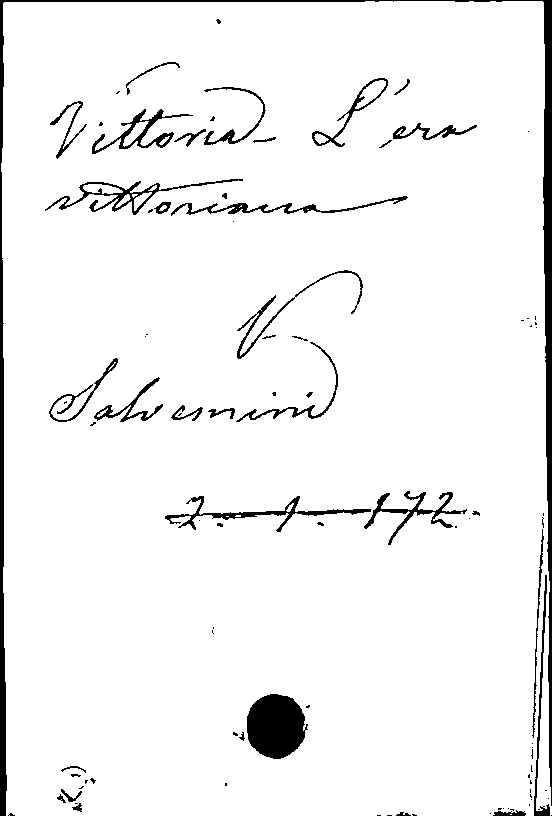 Vittoria - L'era
vittoriana
V
Salvemini
2. 1. 172.